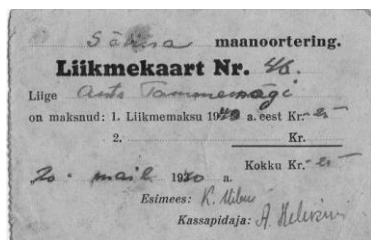 maanoortering.
Liikmekaart Nr. 46.
Liige Ants Tammemägi
on maksnud: 1. Liikmemaksu 1940 a. eest Kr.
2. Kr.
Kokku Kr.
20. mail 1940
Esimees: K.
Kassapidaja: A.